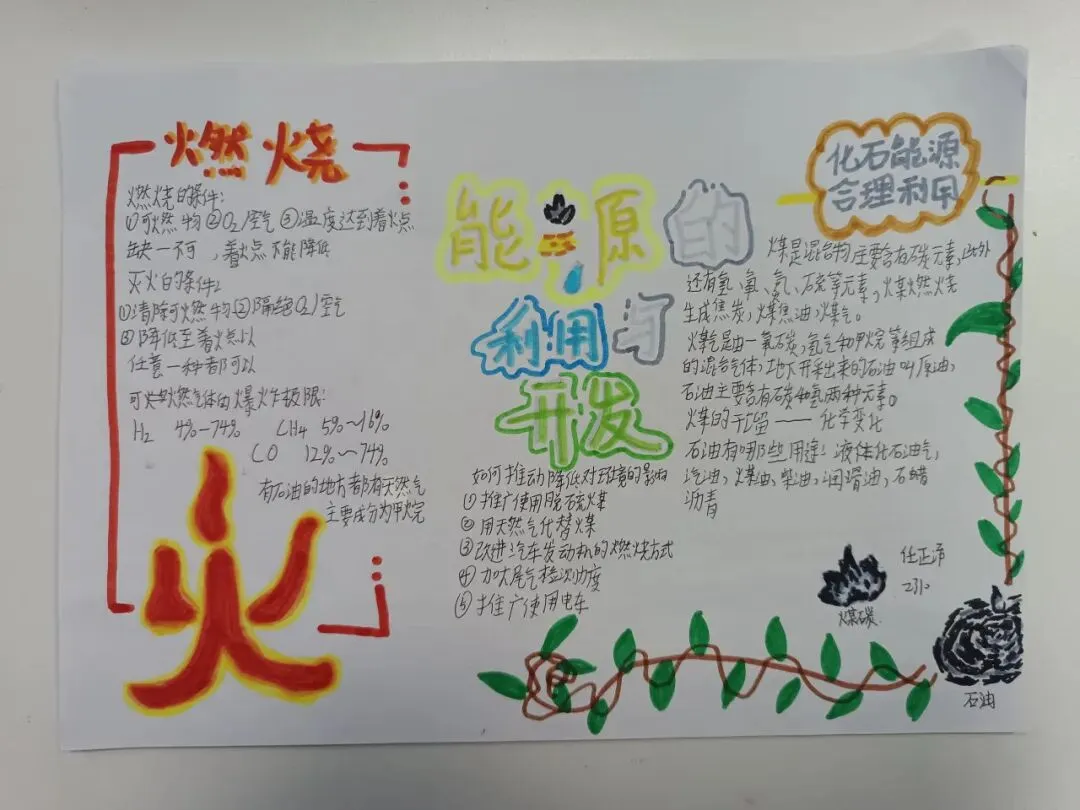 燃烧
燃烧的条件:
①可燃物②O₂/空气③温度达到着火点
缺一不可,着火点不能降低
灭火的条件:
①清除可燃物②隔绝O₂/空气
③降低至着火点以
任意一种都可以
可燃气体的爆炸极限:
H₂ 4%~74% CH4 5%~16%
CO 12%~74%
有石油的地方都有天然气
主要成分为甲烷
火
能源的
利用与
开发
如何推动降低对环境的影响
①推广使用脱硫煤
②用天然气代替煤
③改进汽车发动机的燃烧方式
④加大尾气检测力度
⑤推广使用电车
化石能源
合理利用
煤是混合物主要含有碳元素,此外
还有氢、氧、氮、硫等元素,煤燃烧
生成焦炭,煤焦油,煤气。
煤气是由一氧化碳,氢气和甲烷等组成
的混合气体,地下开采出来的石油叫原油,
石油主要含有碳和氢两种元素。
煤的干馏——化学变化
石油有哪些用途:液体化石油气,
汽油,煤油,柴油,润滑油,石蜡
沥青
2310
煤碳
石油